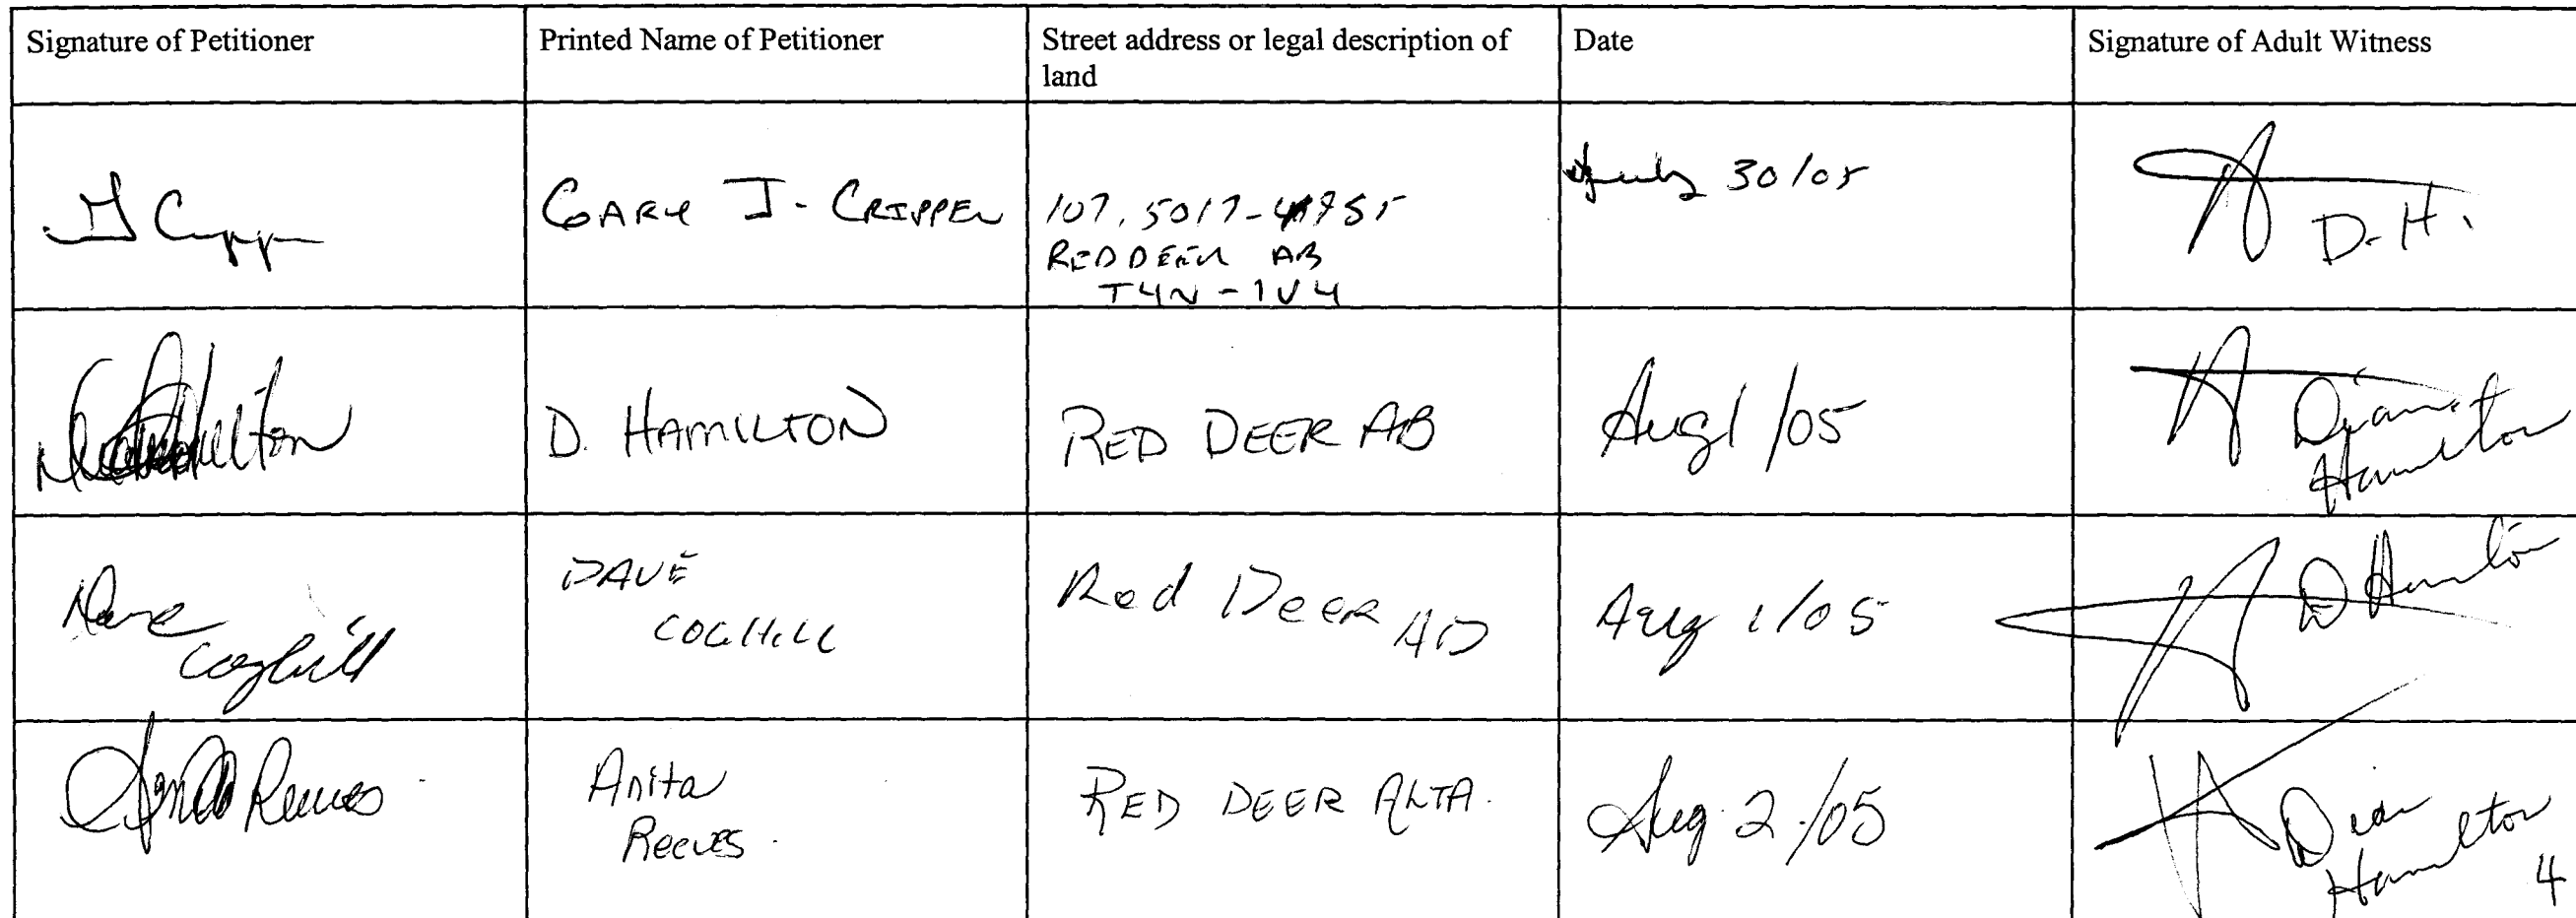 Signature of Petitioner
Printed Name of Petitioner
Street address or legal description of
land
Date
Signature of Adult Witness
GARY J. CRIPPEN
107, 5017-
RED DEER AB
T4N-1V4
July 30/05
D.H.
D. HAMILTON
RED DEER AB
Aug 1/05
Hamilton
Dave
Coghill
DAVE
COGHILL
Red Deer AB
Aug 1/05
D Hamilton
Reeves
Anita
Reeves.
RED DEER ALTA.
Aug. 2./05
Hamilton
4